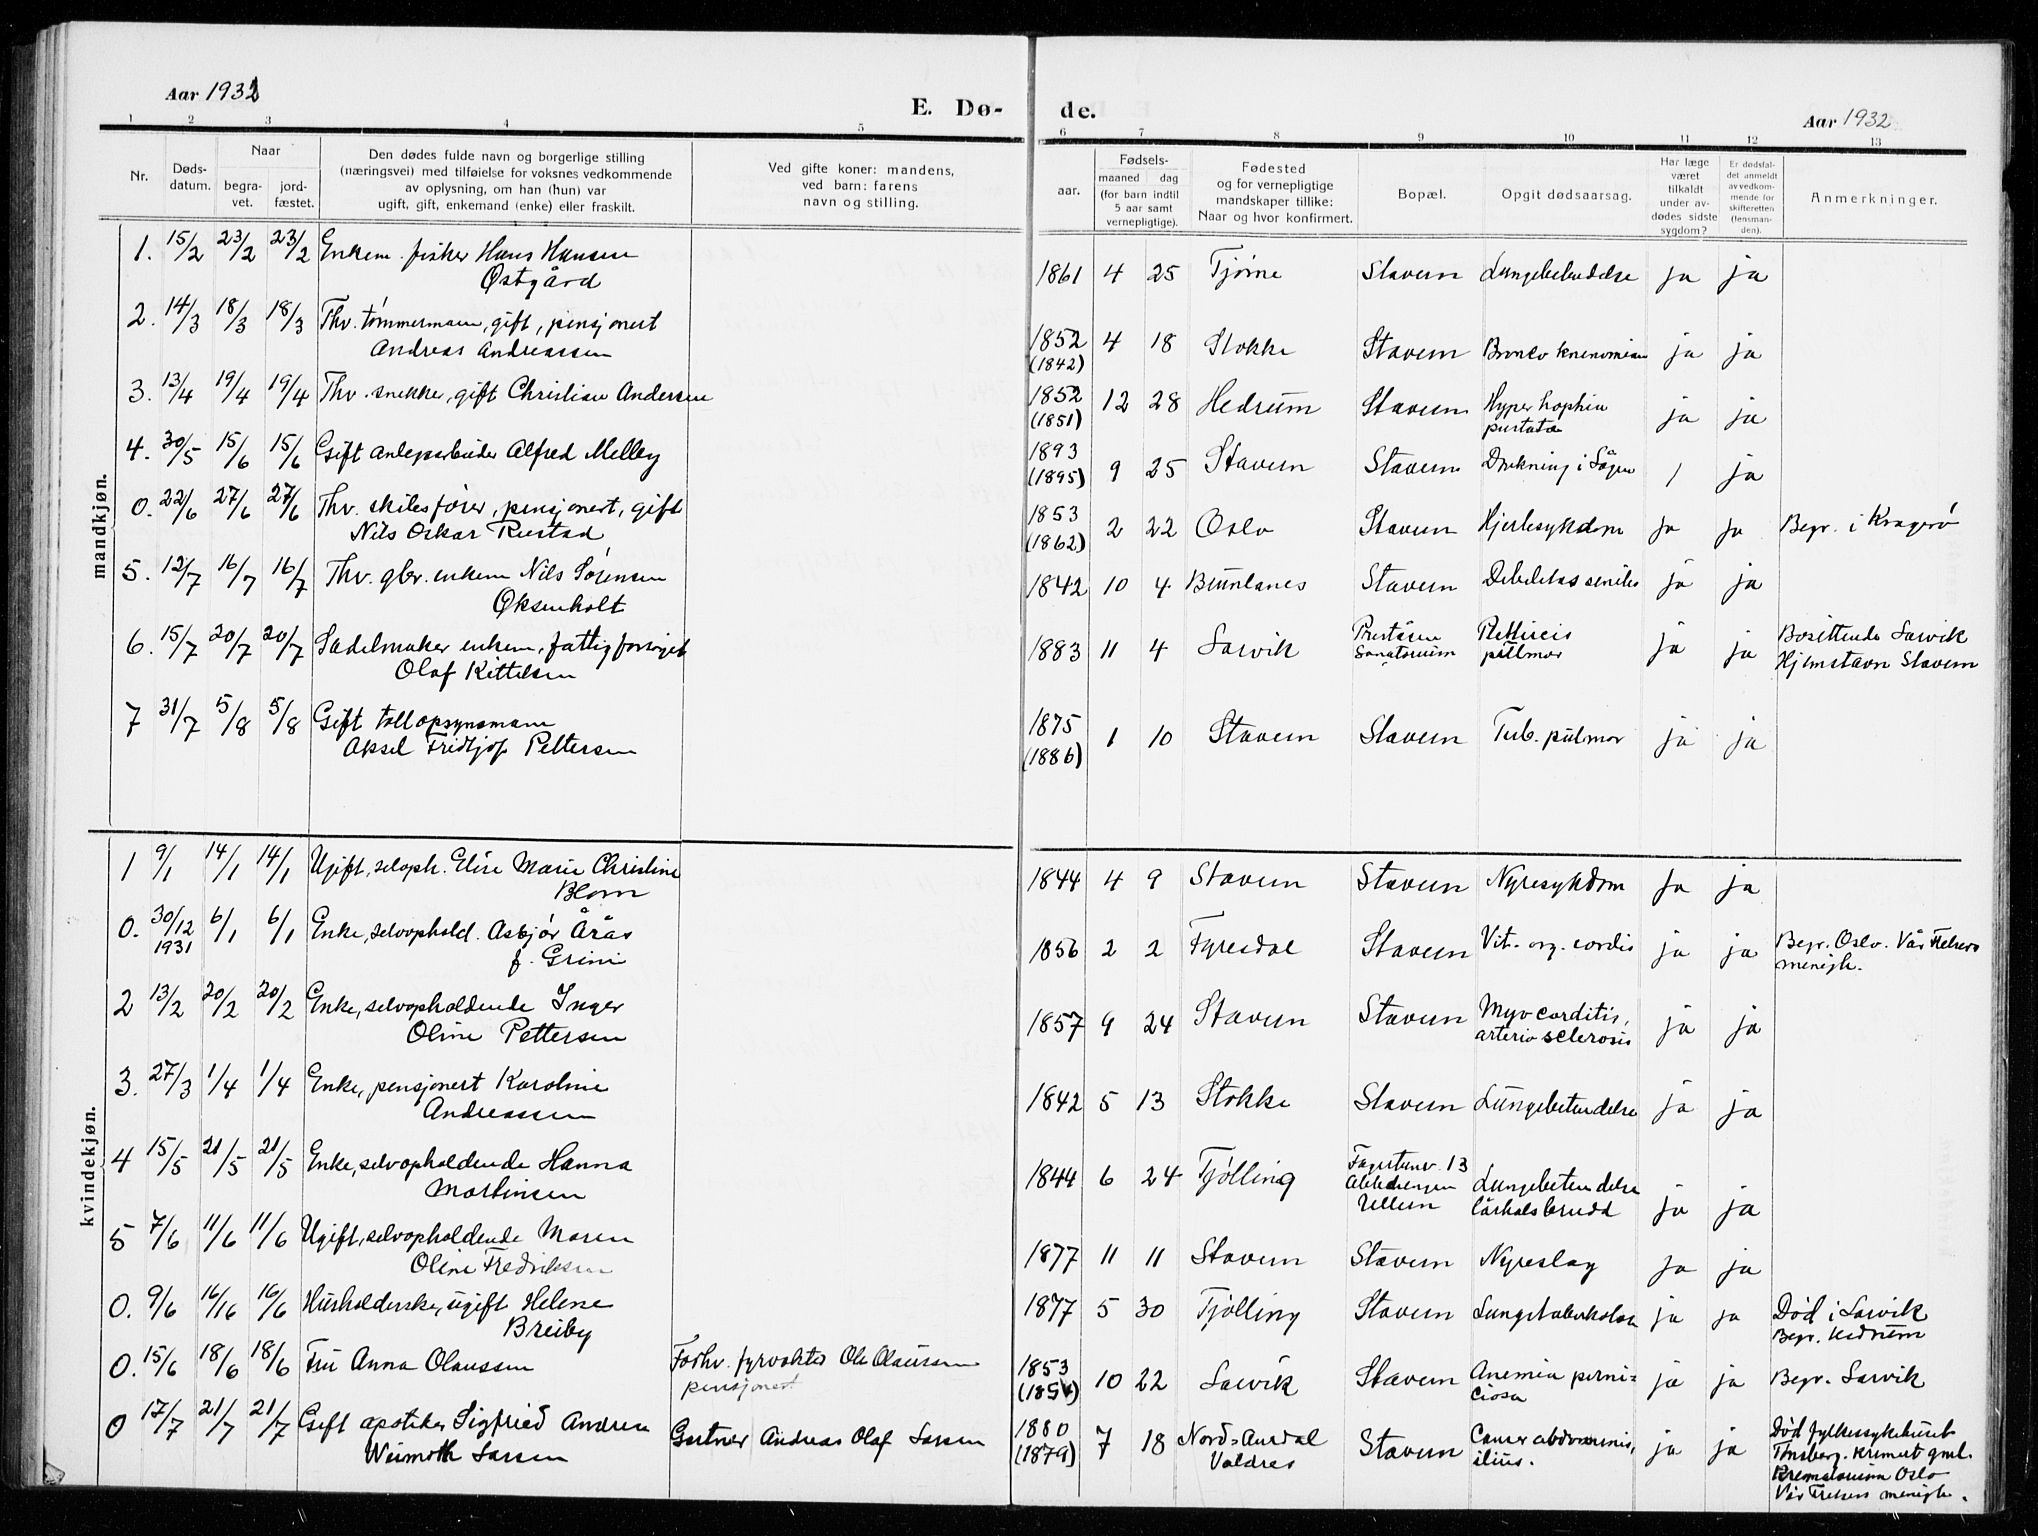 Aar 1932
E. Dø-
1 2 3 4 5
Nr.
Døds-
datum.
Naar
begra-
vet.
jord-
fæstet.
Den dødes fulde navn og borgerlige stilling
(næringsvei) med tilføielse for voksnes vedkommende
av oplysning, om han (hun) var
ugift, gift, enkemand (enke) eller fraskilt.
Ved gifte koner: mandens,
ved barn: farens
navn og stilling.
mandkjøn.
1. 15/2 23/2 23/2 Enkem. fisker Hans Hansen
Østgård
2. 14/3 18/3 18/3 Thv. tømmermann, gift, pensjonert
Andreas Andreassen
3. 13/4 19/4 19/4 Thv. snekker, gift Christian Andersen
4. 30/5 15/6 15/6 Gift anlegsarbeider Alfred Melley
0. 22/6 27/6 27/6 Thv. skibsfører, pensjonert, gift
Nils Oskar Rustad
5. 12/7 16/7 16/7 Thv. gbr. enkem Nils Sørensen
Øksenholt
6. 15/7 20/7 20/7 Sadelmaker enkem, fattigforsørget
Olaf Kittilsen
7 31/7 5/8 5/8 Gift tollopsynsmann
Aksel Fridtjof Pettersen
kvindekjøn.
1 9/1 14/1 14/1 Ugift, selvoph. Elise Marie Christine
Blom
0. 30/12 6/1 6/1 Enke, selvophold. Asbjør Årås
1931 f. Grini
2 13/2 20/2 20/2 Enke, selvopholdende Inger
Oline Pettersen
3. 27/3 1/4 1/4 Enke, pensjonert Karoline
Andreassen
4 15/5 21/5 21/5 Enke, selvopholdende Hanna
Martinsen
5 7/6 11/6 11/6 Ugift, selvopholdende Maren
Oline Fredriksen
0. 9/6 16/16 16/6 Husholderske, ugift Helene
Breiby
0. 15/6 18/6 18/6 Fru Anna Olaussen Forhv. fyrvokter Ole Olaussen
pensjonert
0 17/7 21/7 21/7 Gift apoteker Sigfried Andrea Gartner Andreas Olaf Larsen
Larsen
de.
Aar 1932
6 7 8 9 10 11 12 13
aar.
Fødsels-
maaned dag
(for barn indtil
5 aar samt
vernepligtige).
Fødested
og for vernepligtige
mandskaper tillike:
Naar og hvor konfirmert.
Bopæl.
Opgit dødsaarsag.
Har læge
været
tilkaldt
under av-
dødes sidste
sygdom?
Er dødsfal-
det anmeldt
av vedkom-
mende for
skifteretten
(lensman-
den).
Anmerkninger.
1861 4 25 Tjøme Stavern Lungebetendelse ja ja
1852 4 18 Stokke Stavern ja ja
(1842)
1852 12 28 Hedrum Stavern Hyper ja ja
(1851)
1893 9 25 Stavern Stavern Drukning i Lågen / ja
(1895)
1853 2 22 Oslo Stavern Hjertesykdom ja ja Begr. i Kragerø
(1862)
1842 10 4 Brunlanes Stavern Debilitas senilis ja ja
1883 11 4 Larvik Preståsen Phthisis ja ja Bosittende Larvik
Sanatorium pulmor Hjemstavn Stavern
1875 1 10 Stavern Stavern Tub. pulmor ja ja
(1886)
1844 4 9 Stavern Stavern Nyresykdom ja ja
1856 2 2 Fyresdal Stavern Vit. org. cordis ja ja Begr. Oslo. Vår Frelsers
menigh.
1857 9 24 Stavern Stavern Myocarditis, ja ja
arterio sclerosis
1842 5 13 Stokke Stavern Lungebetendelse ja ja
1844 6 24 Tjølling 13 Lungebetendelse ja ja
Ullern Lårhalsbrudd
1877 11 11 Stavern Stavern Nyreslag ja ja
1877 5 30 Tjølling Stavern Lungetuberkulose ja ja Død i Larvik
Begr. Hedrum
1853 10 22 Larvik Stavern Anemia perni= ja ja Begr. Larvik
(1854) ciosa
1880 7 18 Nord-Aurdal Stavern Cancer abdominis, ja ja Død fylkessykehuset
(1879) Valdres Tønsberg. Kremert gml.
Krematorium Oslo
Vår Frelsers menigh.